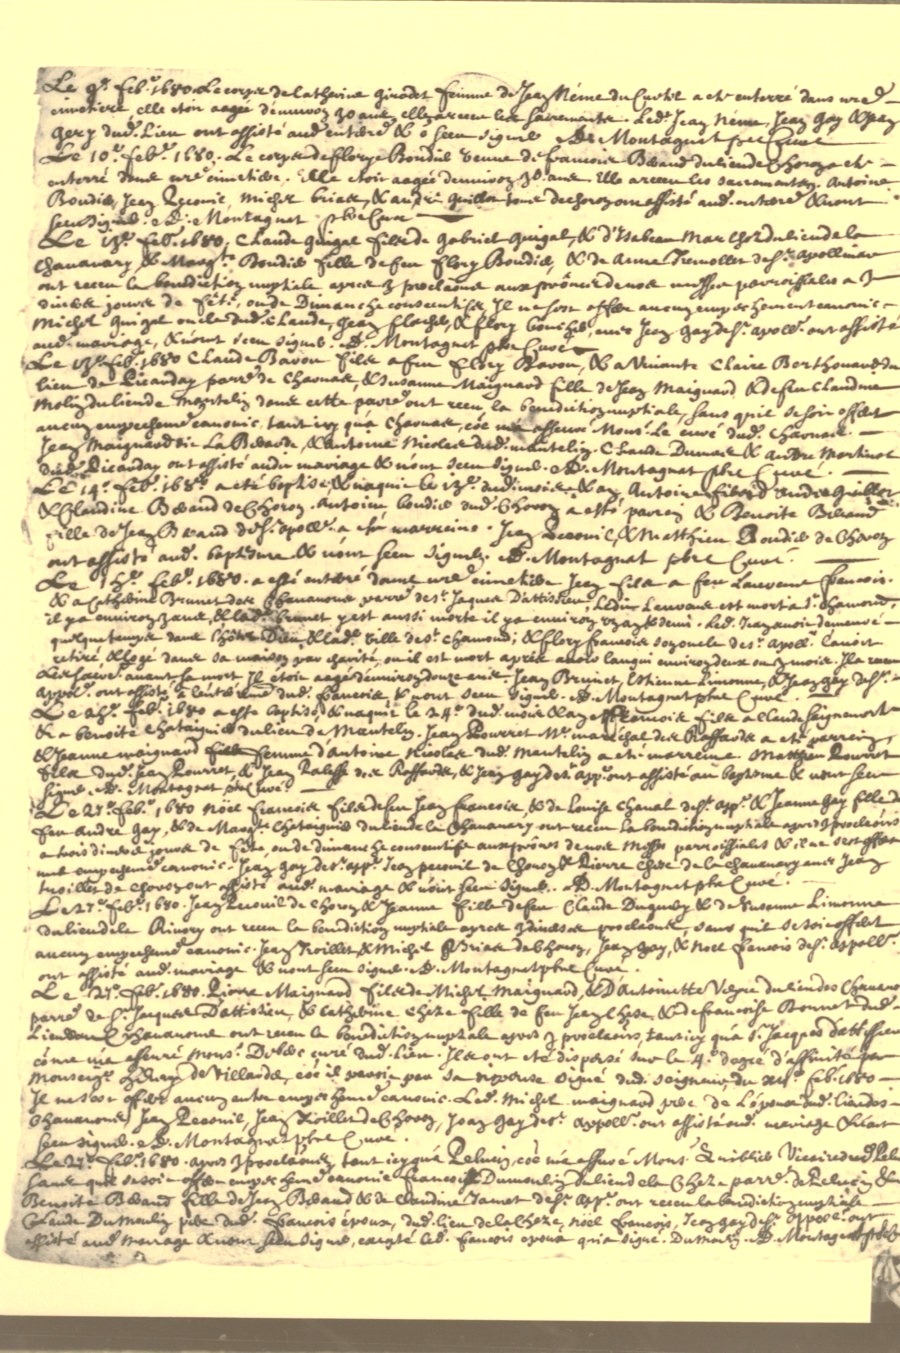 Le 9e. feb.e 1680. Le corps de Catherine girodet femme de Jean Néme du Curtil a eté enterré dans nre
cimetiere elle etoit aagée denuiron 30 ans, elle a receu les sacremants. Led. Jean neme, Jean Gay &
Gery dud. Lieu ont assisté aud. enterre & ñ sceu signer. A D. Montagnat pbre Curé
Le 10e. feb.e 1680. Le corps de florye Boudié veuue de francois Beraud du lieu de Choron a eté
enterré dans nre cimetiere. Elle etoit aagée denuiron ans. Elle a receu les sacramants. Antoine
Boudié, Jean Recouil, Michel briak, & andré guillot tous de choron ont assisté aud. enterre & n'ont
sceu signer. A D. Montagnat pbre Curé
Le feb.e 1680, Claude Guigal fils de Gabriel Guigal, & d'Isabeau du lieu de la
Chauanary, & Marg.te Boudié fille de feu flory Boudié, & de Anne Tremollet de St. apollinar
ont receu la benediction nuptiale apres 3 proclaõns aux prônes de nos messes parroissiales a 3
diuers jours de feste, ou de Dimanche consecutifs. Il ne s'est offert aucun empechement canonic
Michel Guigal oncle dud. Claude, Jean & flory auec Jean gay de St. apoll. ont assisté
aud. mariage, & n'ont sceu signer. A D. Montagnat pbre Curé
Le feb.e 1680 Claude Bavou fils a feu flory Bavou, & a Viuante Claire Berthouard du
lieu de Picanday parre. de Chaonas, & Susanne Maignard fille de Jean Maignard & de feu Claudine
Molin du lieu de Mantelin dans cette parre. ont receu la benediction nuptiale, sans qu'il se soit offert
aucun empechemt. canonic, tant icy qu'a Chaonas, cõe m'a asseuré Mons.r Le curé dud. Chaonas.
Jean Maignard dit La Bedode, & antoine Nicolas dud. mantelin, Claude Dumas & andre Martinot
dud. Picanday ont assisté audit mariage & n'ont sceu signer. A D. Montagnat pbre Curé.
Le 14e. feb.e 1680 a eté baptisé & naquit le dud. mois & an, Antoine fils d'andre guillot
& Claudine Beraud de Choron. Antoine boudié dud. Choron a esté parrein & Benoite Beraud
fille de Jean Beraud de St. apoll. a eté marreine. Jean Recouil, & Matthieu Boudié de Choron
ont assisté aud. baptesme & n'ont sceu signer. A D. Montagnat pbre Curé.
Le feb.e 1680. a esté enterré dans nre cimetiere Jean fils a feu Laurans francois.
& a Catherine Brunet des Chauanons parre. de St. Jaques D'attissieu, Ledit Laurans est mort a St. Chamond,
il y a enuiron ans, & lad. Brunet y est aussi morte il y a enuiron & demi. Led. Jean auoit demeuré
quelque temps dans l'hôtel Dieu & lad. Ville de St. Chamond; & flory francois son oncle de St. apoll. l'auoit
retiré, & logé dans sa maison par charité, ou il est mort apres auoir langui enuiron deux ou 3 mois. Il a receu
avant sa mort Il etoit aagé denuiron douze ans. Jean Brunet, Estienne Limonne, & Jean gay de St.
appol. ont assisté a l'enterremt. dud. francois & n'ont sceu signer. A D. Montagnat pbre Curé
Le 25e. feb.e 1680 a esté baptisé, & naquit le 24e. dud. mois & an francois fils a Claude
& a benoite Chataignier du lieu de Mantelin. Jean Pourret Me. marechal des Raffards a eté parrein,
& Jeanne maignard femme d'antoine Nicolas dud. Mantelin a eté marreine Matthieu Pourret
fils dud. Jean Pourret, & Jean des Raffards, & Jean gay de St. app. ont assisté au baptesme & n'ont sceu
signer. A D. Montagnat pbre Curé.
Le 27e. feb.e 1680 Noël francois fils de feu Jean francois, & de Louise Chanal de St. app. & Jeanne Gay fille de
feu André Gay, & de Marg.te Chataignier du lieu de la Chauanary ont receu la benediction nuptiale apres 3 proclaõns
a trois diuers jours de feste, ou de dimanche consecutifs aux prônes de nos Messes parroissiales & il ne s'est offert
nul empechemt. canonic. Jean gay de St. app. Jean pecouil de Choron & Pierre Chese de la chauanary auec Jean
troillet de choron ont assisté aud. mariage & n'ont sceu signer. A D. Montagnat pbre Curé.
Le 27e. feb.e 1680. Jean Recouil de Choron, & Jeanne fille de feu Claude & de Susanne Limonne
du lieu de la Riuory ont receu la benediction nuptiale apres 3 diuerses proclaõns, sans qu'il se soit offert
aucun empechemt. canonic. Jean troillet, & Michel Briak de Choron, Jean Gay, & Noel francois de St. appoll.
ont assisté aud. mariage & n'ont sceu signer. A D. Montagnat pbre Curé.
Le 27e. feb.e 1680. Pierre Maignard fils de Michel Maignard, & D'Antoinette du lieu des Chauanons
parre. de St. Jacques D'attissieu, & Catherine Cheze fille de feu Jean Chese, & de francoise Bonnet dud.
Lieu des Chauanons ont receu la benediction nuptiale apres 3 proclaõns, tant icy qu'a St. Jacques d'attissieu
cõme m'a asseuré Mons.r curé dud. Lieu. Ils ont eté dispensés sur le 4e. degré d'affinité par
Monseigr. Henry de Villards, cõe il paroit par sa signée dud. seigneur du feb.e 1680
Il ne s'est offert aucun autre empechemt. canonic. Led. Michel maignard père de L'époux dud. lieu des
Chauanons, Jean Recouil, Jean troillet de Choron, Jean Gay de St. appoll. ont assisté aud. mariage & n'ont
sceu signer. A D. Montagnat pbre Curé.
Le 27e. feb.e 1680. apres 3 proclaõns, tant icy qu'a Pelucin, cõe m'a assuré Mons.r Vicaire dud. Pelu
sans que se soit offert empechemt. canonic francois Dumoulin du lieu de la Cheze parre. de Pelucin, &
Benoite Beraud fille de Jean Beraud & de Claudine Jamet de St. app. ont receu la benediction nuptiale
Claude Dumoulin père dud. francois époux, dud. lieu de la Cheze, Noël francois, Jean gay de St. appoll. ont
assisté aud. mariage & n'ont sceu signer, excepté led. francois epoux qui a signé. Dumoulin. A D. Montagnat pbre C